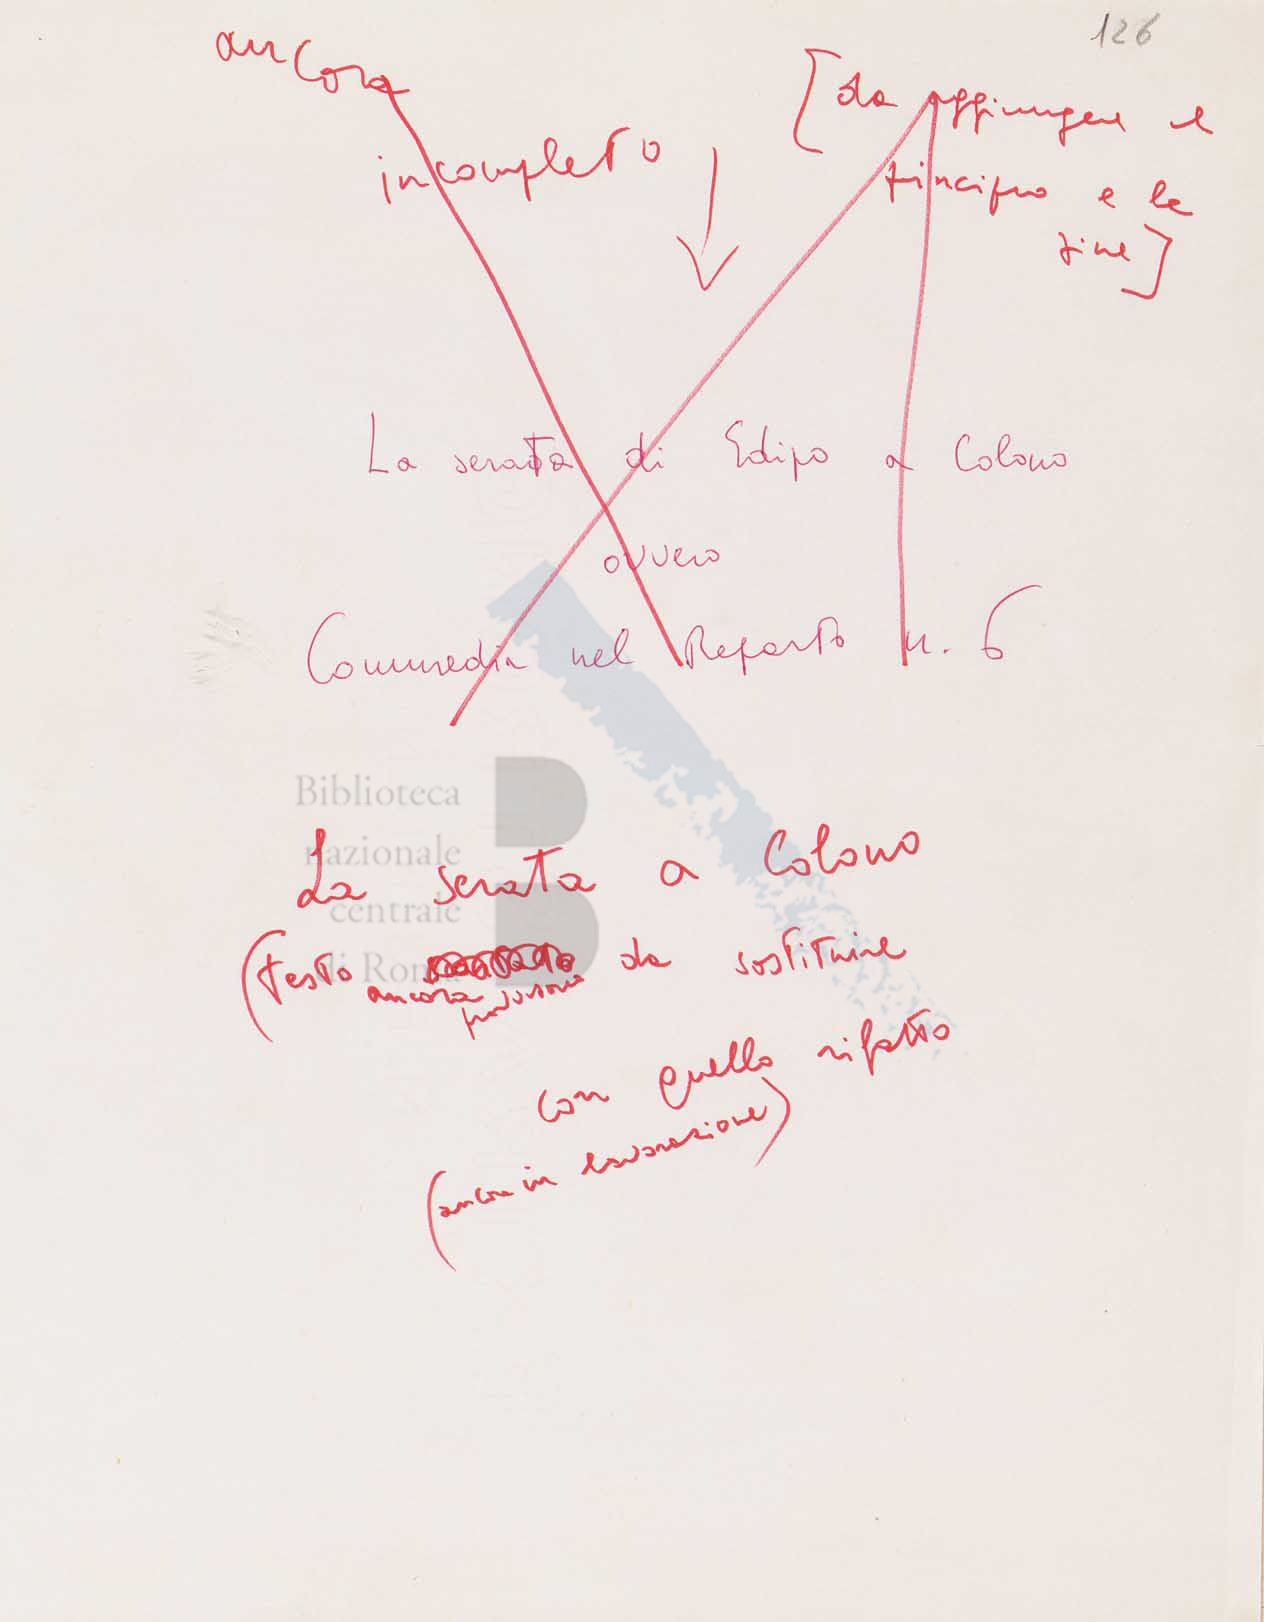 126
ancora
incompleto
[da aggiungere il
principio e la
fine]
La serata di Edipo a Colono
ovvero
Commedia nel Reparto n. 6
Biblioteca
nazionale
centrale
di Roma
La serata a Colono
(testo da sostituire
ancora provvisorio
con quello rifatto
(ancora in lavorazione)